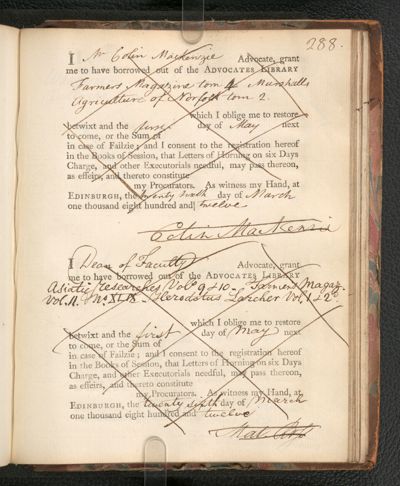 288.
I Mr Colin Mackenzie Advocate, grant
me to have borrowed out of the ADVOCATES LIBRARY
Farmers Magazine tom 4 Marshalls
Agriculture of Norfolk tom 2.
which I oblige me to restore
betwixt and the first day of May next
to come, or the Sum of
in case of Failzie; and I consent to the registration hereof
in the Books of Session, that Letters of Horning on six Days
Charge, and other Executorials needful, may pass thereon,
as effeirs, and thereto constitute
my Procurators. As witness my Hand, at
EDINBURGH, the twenty sixth day of March
one thousand eight hundred and twelve.
Colin Mackenzie
I Dean of Faculty Advocate, grant
me to have borrowed out of the ADVOCATES LIBRARY
Asiatic researches Vols 9 & 10 - Farmers Magaz.
Vol. 11. No XLIX - Herodotus Larcher Vol. 1 & 2d.
which I oblige me to restore
betwixt and the first day of May next
to come, or the Sum of
in case of Failzie; and I consent to the registration hereof
in the Books of Session, that Letters of Horning on six Days
Charge, and other Executorials needful, may pass thereon,
as effeirs, and thereto constitute
my Procurators. As witness my Hand, at
EDINBURGH, the twenty sixth day of March
one thousand eight hundred and twelve
Mat.